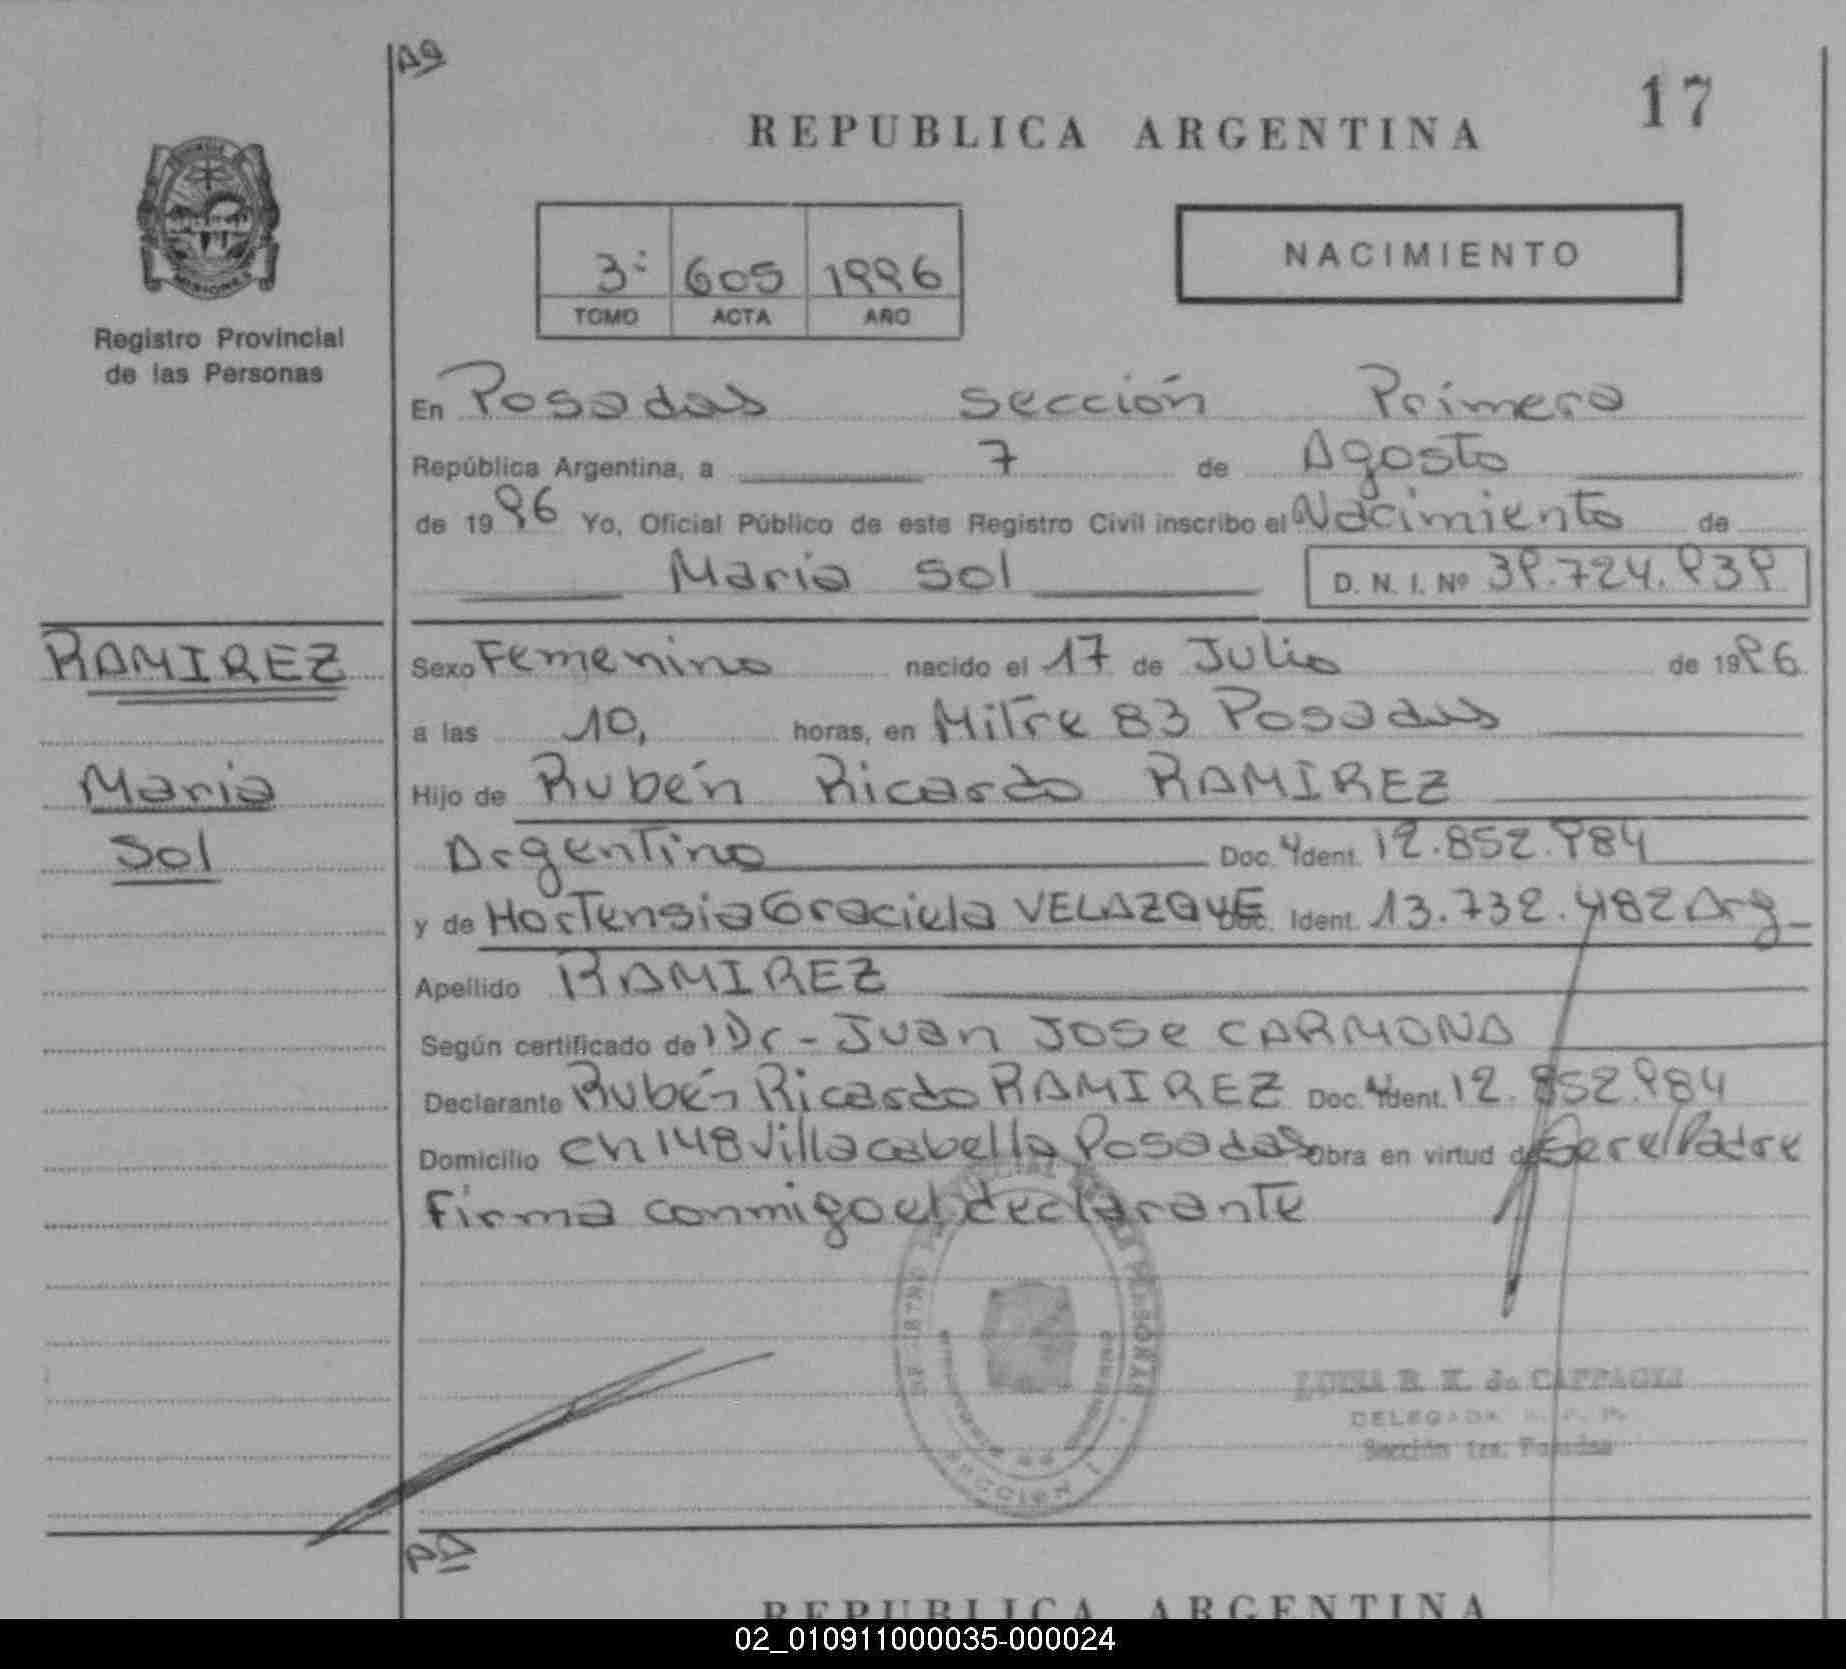 A9
17
REPUBLICA ARGENTINA
3: 605 1996
TOMO ACTA AÑO
NACIMIENTO
Registro Provincial
de las Personas
En Posadas sección Primera
República Argentina, a 7 de Agosto
de 1996 Yo, Oficial Público de este Registro Civil inscribo el Nacimiento de
Maria Sol D. N. I. Nº 39.724.939
RAMIREZ
Maria
Sol
Sexo Femenino nacido el 17 de Julio de 1996
a las 10, horas, en Mitre 83 Posadas
Hijo de Rubén Ricardo RAMIREZ
Argentino Doc. Ident. 12.852.984
y de Hortensia Graciela VELAZQUE Doc. Ident. 13.732.482 Arg
Apellido RAMIREZ
Según certificado de Dr- Juan Jose CARMONA
Declarante Rubén Ricardo RAMIREZ Doc. Ident. 12.852.984
Domicilio Ch 148 Villa cabello Posadas Obra en virtud de Ser el Padre
Firma conmigo el declarante
SECCION I
LUISA B. de
DELEGADA R. P. P.
Sección 1ra. Posadas
REPUBLICA ARGENTINA
02_010911000035-000024